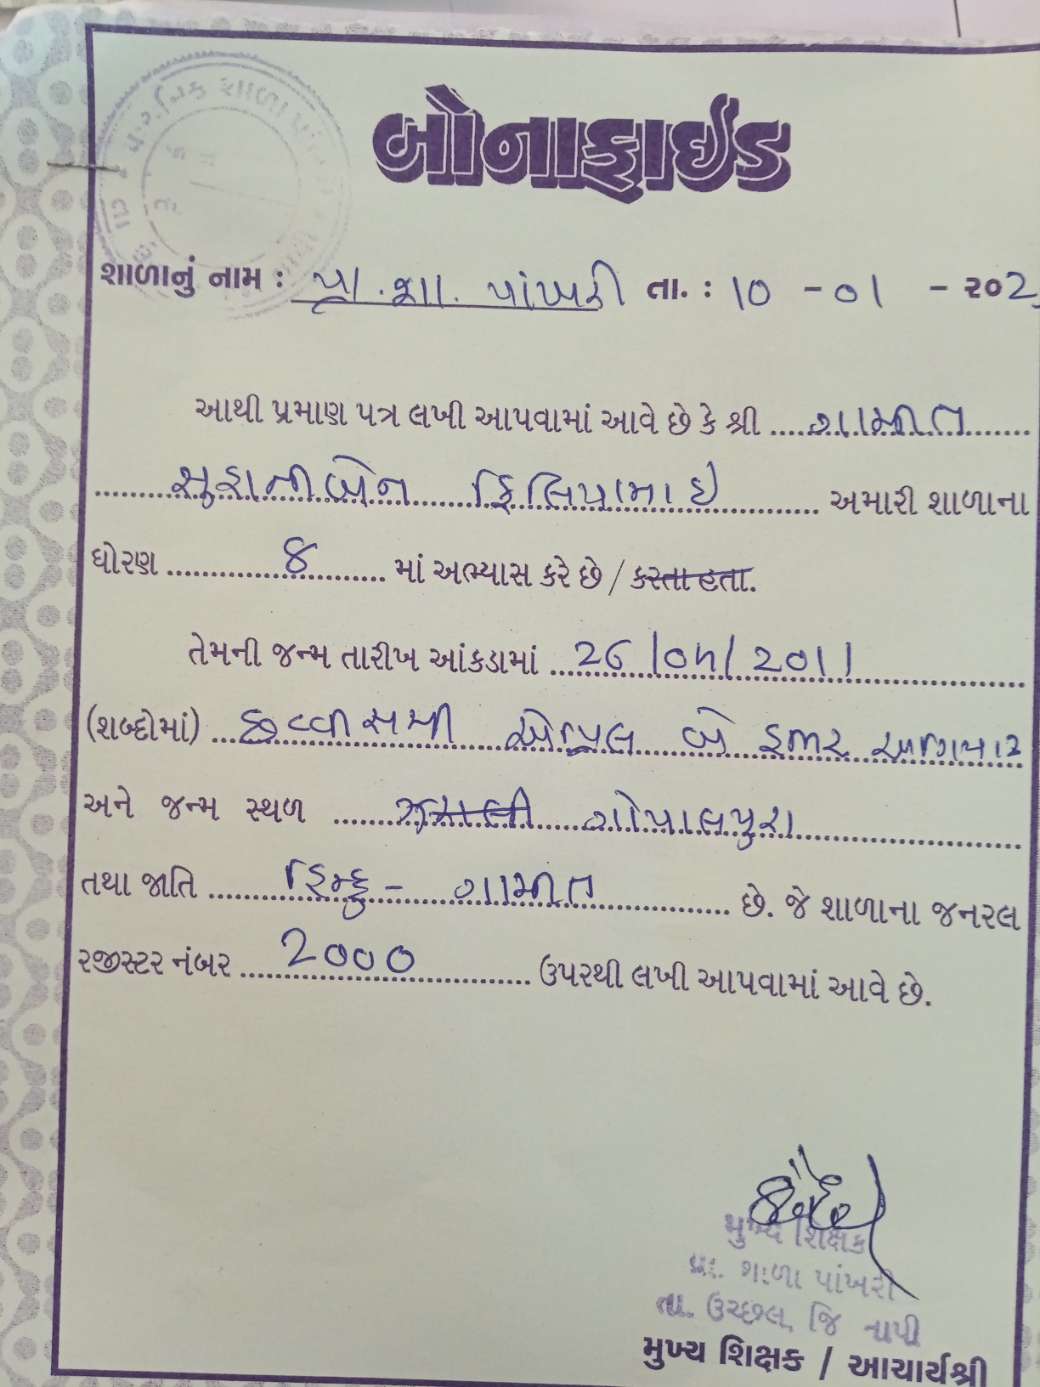 બોનાફાઈડ
શાળાનું નામ : પ્રા. શા. પાંખરી તા. : 10 - 01 - ૨૦2
આથી પ્રમાણ પત્ર લખી આપવામાં આવે છે કે શ્રી ....ગામીત....
....બેન ફિલિપભાઇ.... અમારી શાળાના
ધોરણ ....8.... માં અભ્યાસ કરે છે / કરતા હતા.
તેમની જન્મ તારીખ આંકડામાં ....26/04/2011....
(શબ્દોમાં) ....છવ્વીસમી એપ્રિલ બે હજાર અગિયાર
અને જન્મ સ્થળ .... ગોપાલપુરા....
તથા જાતિ ....હિન્દુ - ગામીત.... છે. જે શાળાના જનરલ
રજીસ્ટર નંબર ....2000.... ઉપરથી લખી આપવામાં આવે છે.
મુખ્ય શિક્ષક
પ્રા. શાળા પાંખરી
તા. ઉચ્છલ, જિ તાપી
મુખ્ય શિક્ષક / આચાર્યશ્રી